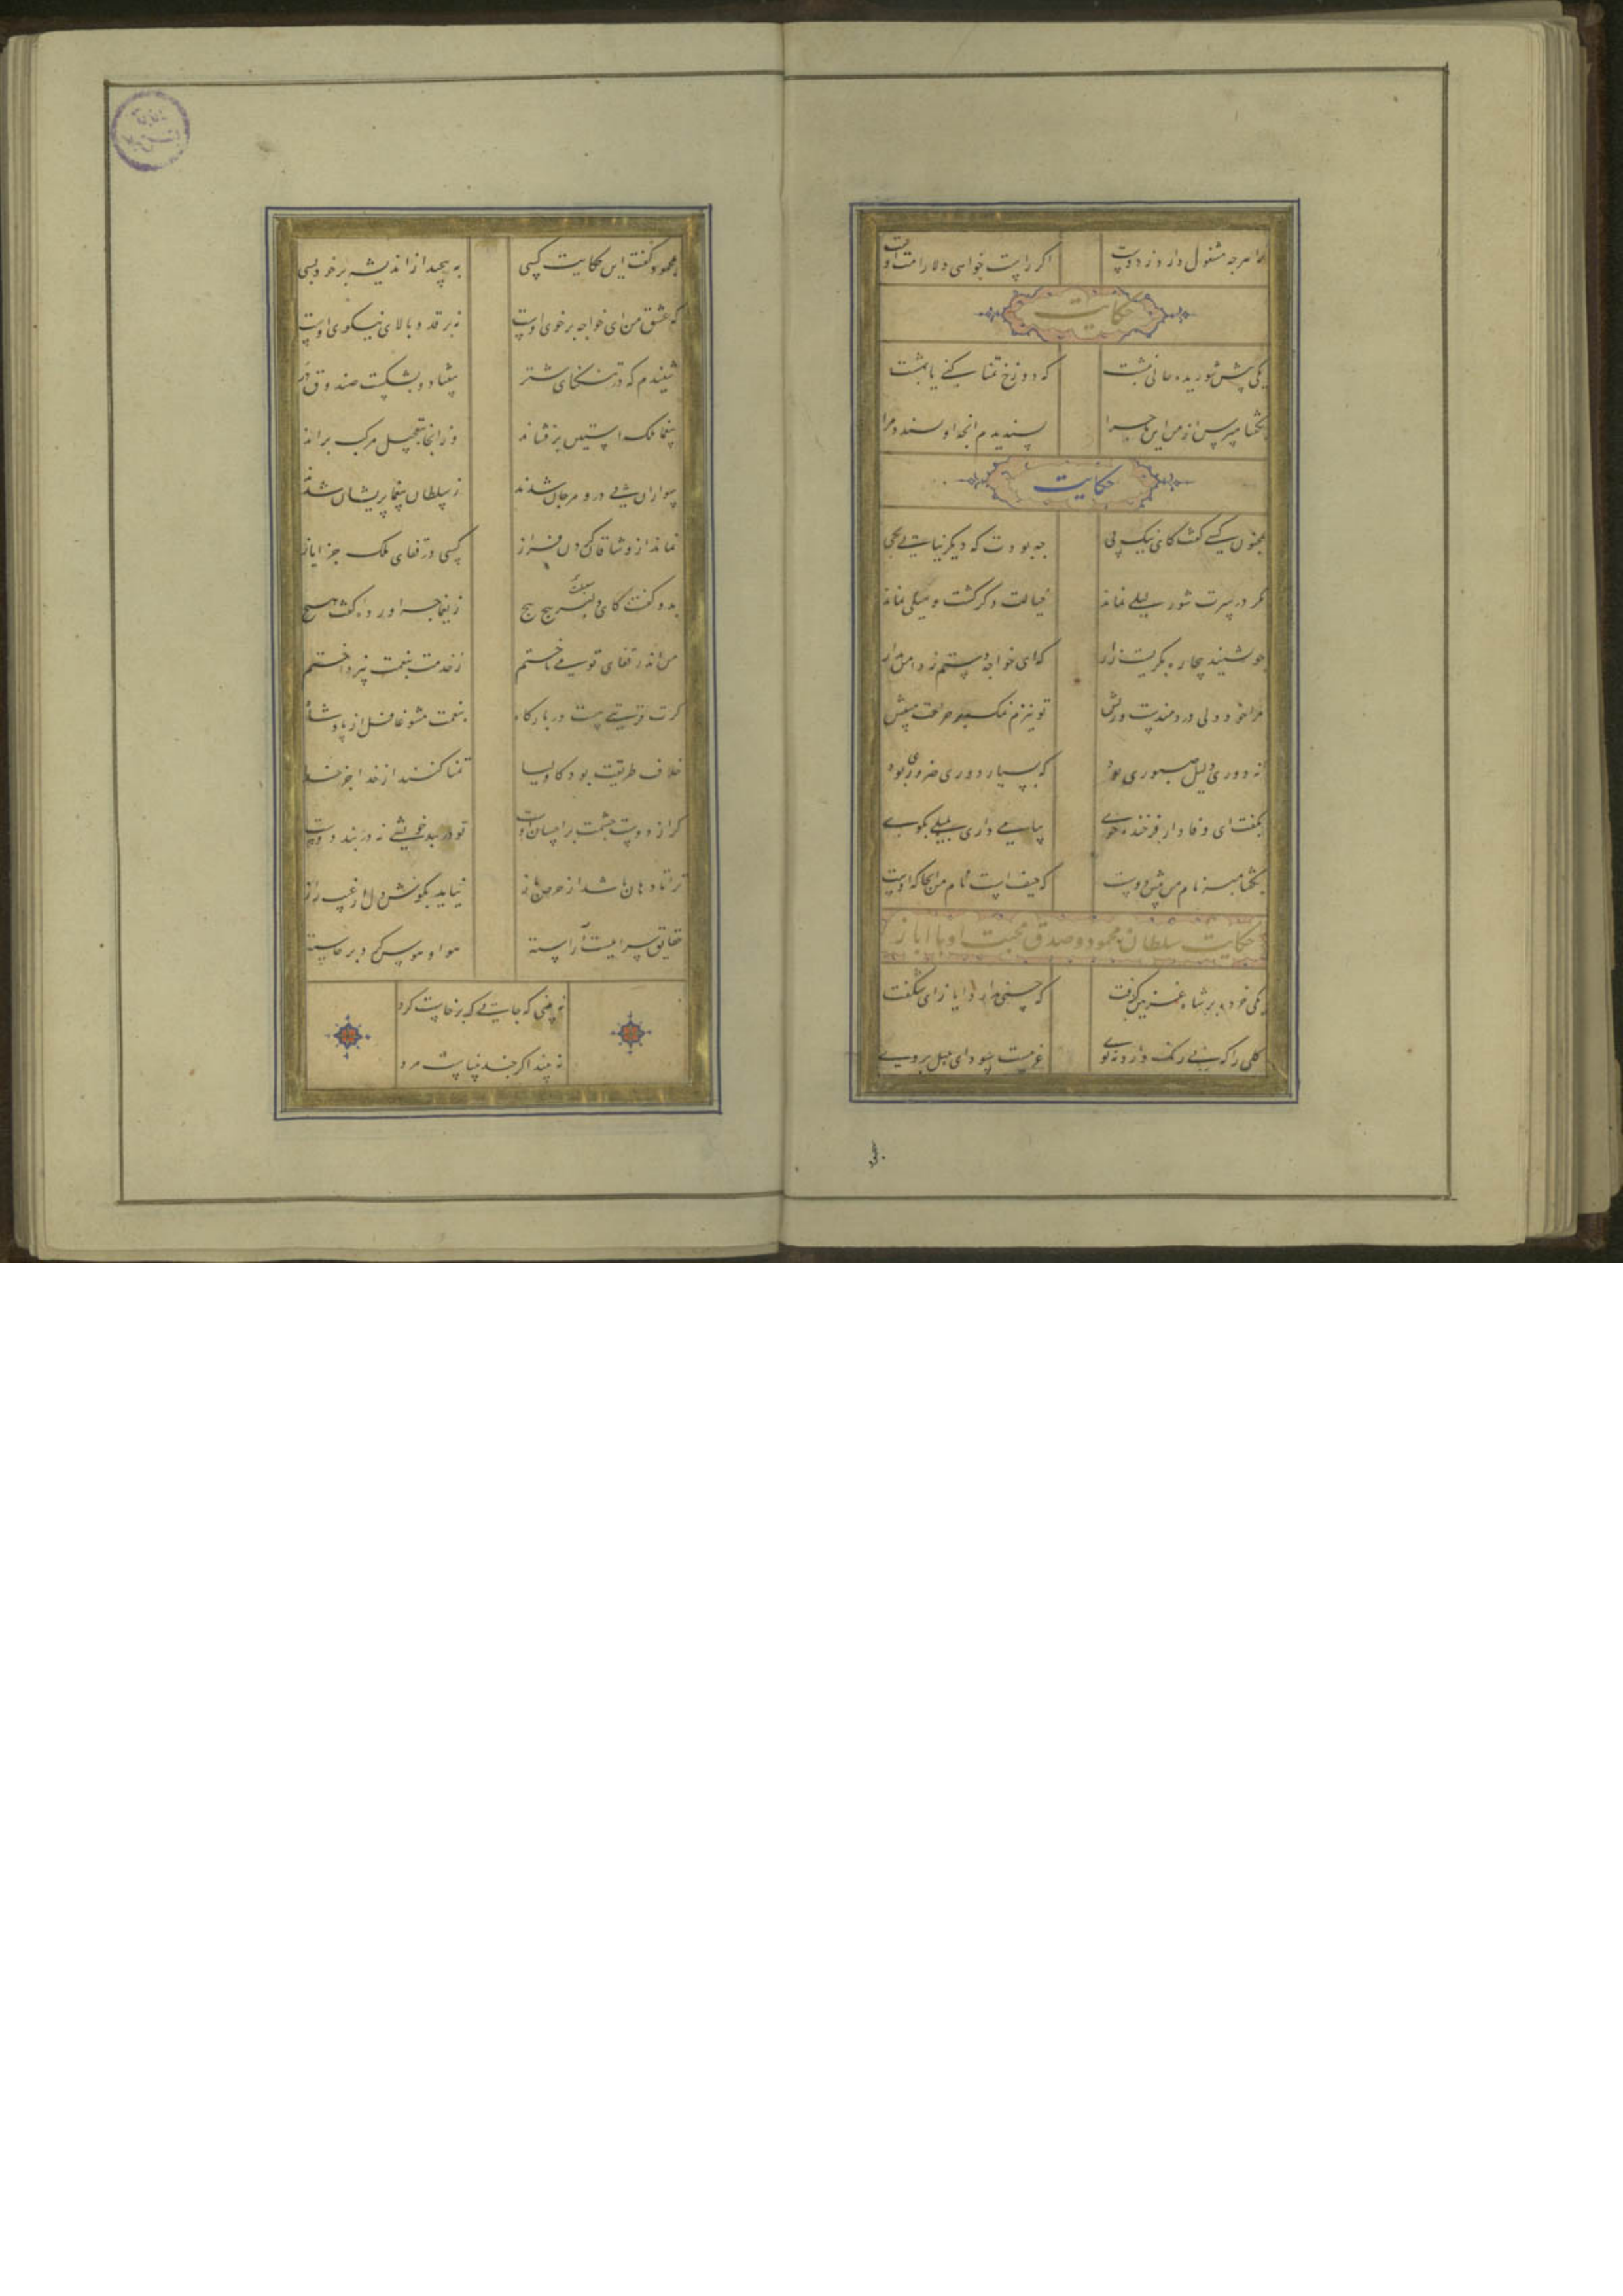 ترا هرجه مشغول دارد ز دوست اکر راست خواهی دلارامت اوست
حکایت
یکی پیش شوریده حالی نبشت که دوزخ تمنا کنی یا بهشت
بکفتا مپرس از من این ماجرا پسندیدم آنجه او پسندد مرا
حکایت
بمجنون کسی کفت کای نیک پی جه بودت که دیکر نیایی بحی
مکر در سرت شور لیلی نماند خیالت دکر کشت و میلی نماند
جو بشنید بیجاره بکریست زار که ای خواجه دستم ز دامن بدار
مرا خود دلی دردمندست ریش تو نیزم نمک بر جراحت مپیش
نه دوری دلیل صبوری بود که بسیار دوری ضروری بود
بکفت ای وفادار فرخنده خوی پیامی که داری بلیلی بکوی
بکفتا مبر نام من پیش دوست که حیفست نام من آنجا که اوست
حکایت سلطان محمود و صدق محبت او با ایاز
یکی خرده بر شاه غزنین کرفت که حسنی ندارد ایاز ای شکفت
کلی را که نی رنک دارد نه بوی غریبست سودای بلبل بروی
بمحمود کفت این حکایت کسی به پیجید از اندیشه بر خود بسی
که عشق من ای خواجه بر خوی اوست نه بر قد و بالای نیکوی اوست
شنیدم که در تنکنای شتر بیفتاد و بشکست صندوق در
بیغما ملک استین برفشاند وز انجا بتعجیل مرکب براند
سواران پی در و مرجان شدند ز سلطان بیغما پریشان شدند
نماند از وشاقان کردن فراز کسی در قفای ملک جز ایاز
بدو کفت کای دلبر پیج پیج ز یغما جه اورده کفت هیج
من اندر قفای تو می تاختم ز خدمت بنعمت نپرداختم
کرت قربتی هست در بارکاه بنعمت مشو غافل از پادشاه
خلاف طریقت بود کاولیا تمنا کنند از خدا جز خدا
کر از دوست جشمت بر احسان اوست تو در بند خویشی نه در بند دوست
ترا تا دهان باشد از حرص باز نیاید بکوش دل از غیب راز
حقایق سراییست آراسته هوا و هوس کرد برخاسته
نه بینی که جایی که برخاست کرد
نه بیند نظر اکر جند بیناست مرد